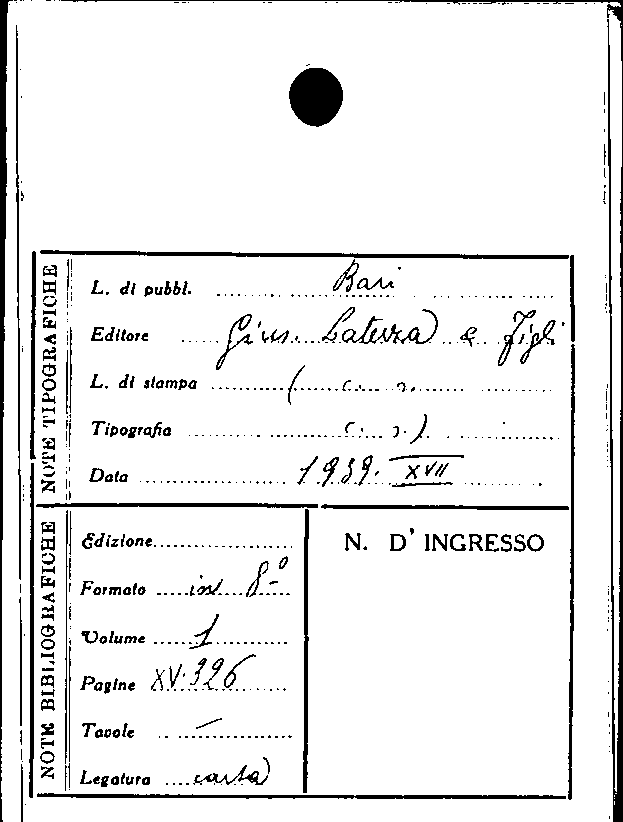 NOTE TIPOGRAFICHE
L. di pubbl. Bari
Editore Gius. Laterza e Figli
L. di stampa ( c. s.
Tipografia c. s. )
Data 1939. XVII
NOTE BIBLIOGRAFICHE
Edizione
Formato in 8º
Volume 1
Pagine XV-326
Tavole —
Legatura carta
N. D' INGRESSO